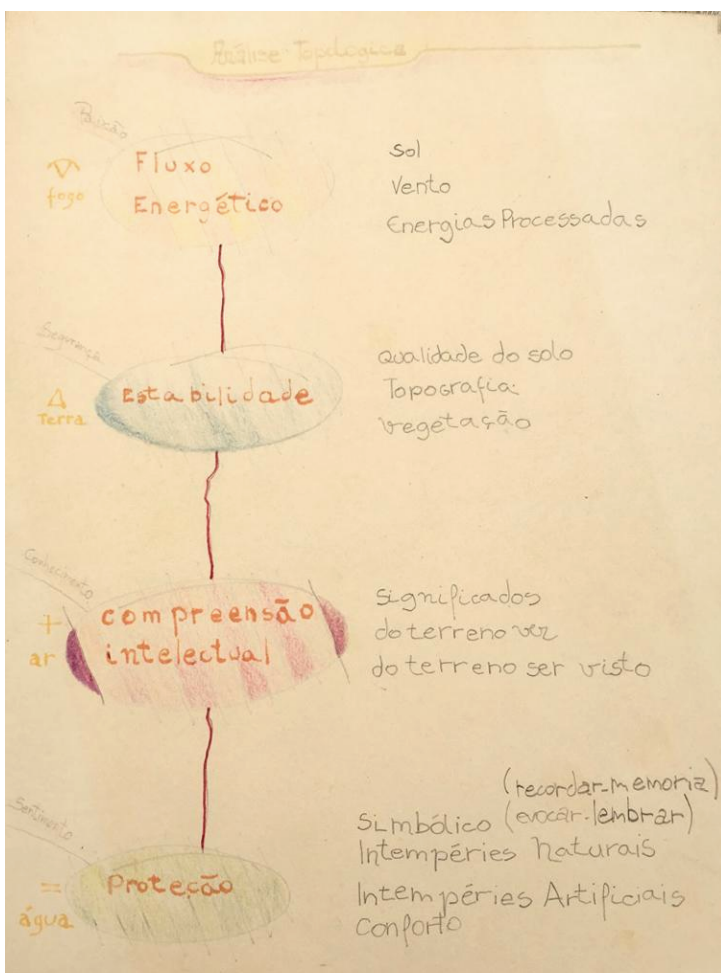 Análise Topológica
Paixão
fogo
Fluxo
Energético
Sol
Vento
Energias Processadas
Segurança
Terra
Estabilidade
Qualidade do solo
Topografia
vegetação
Conhecimento
+
ar
compreensão
intelectual
Significados
do terreno ver
do terreno ser visto
Sentimento
=
água
Proteção
(recordar-memoriz)
Simbólico (evocar-lembrar)
Intempéries Naturais
Intempéries Artificiais
Conforto